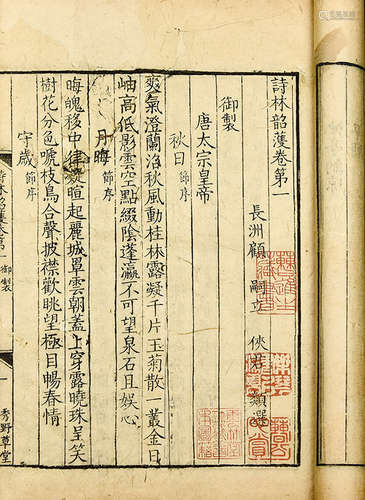 詩林韶濩卷第一
長洲顧 嗣立 俠君 類選
御製
唐太宗皇帝
秋日 節序
爽氣澄蘭沼秋風動桂林露凝千片玉菊散一叢金日
岫高低影雲空點綴陰蓬瀛不可望泉石且娛心
月晦 節序
晦魄移中律凝暄起麗城罩雲朝蓋上穿露曉珠呈笑
樹花分色嗁枝鳥合聲披襟歡眺望極目暢春情
守歲 節序
詩林韶濩卷第一 御製
一
秀野草堂